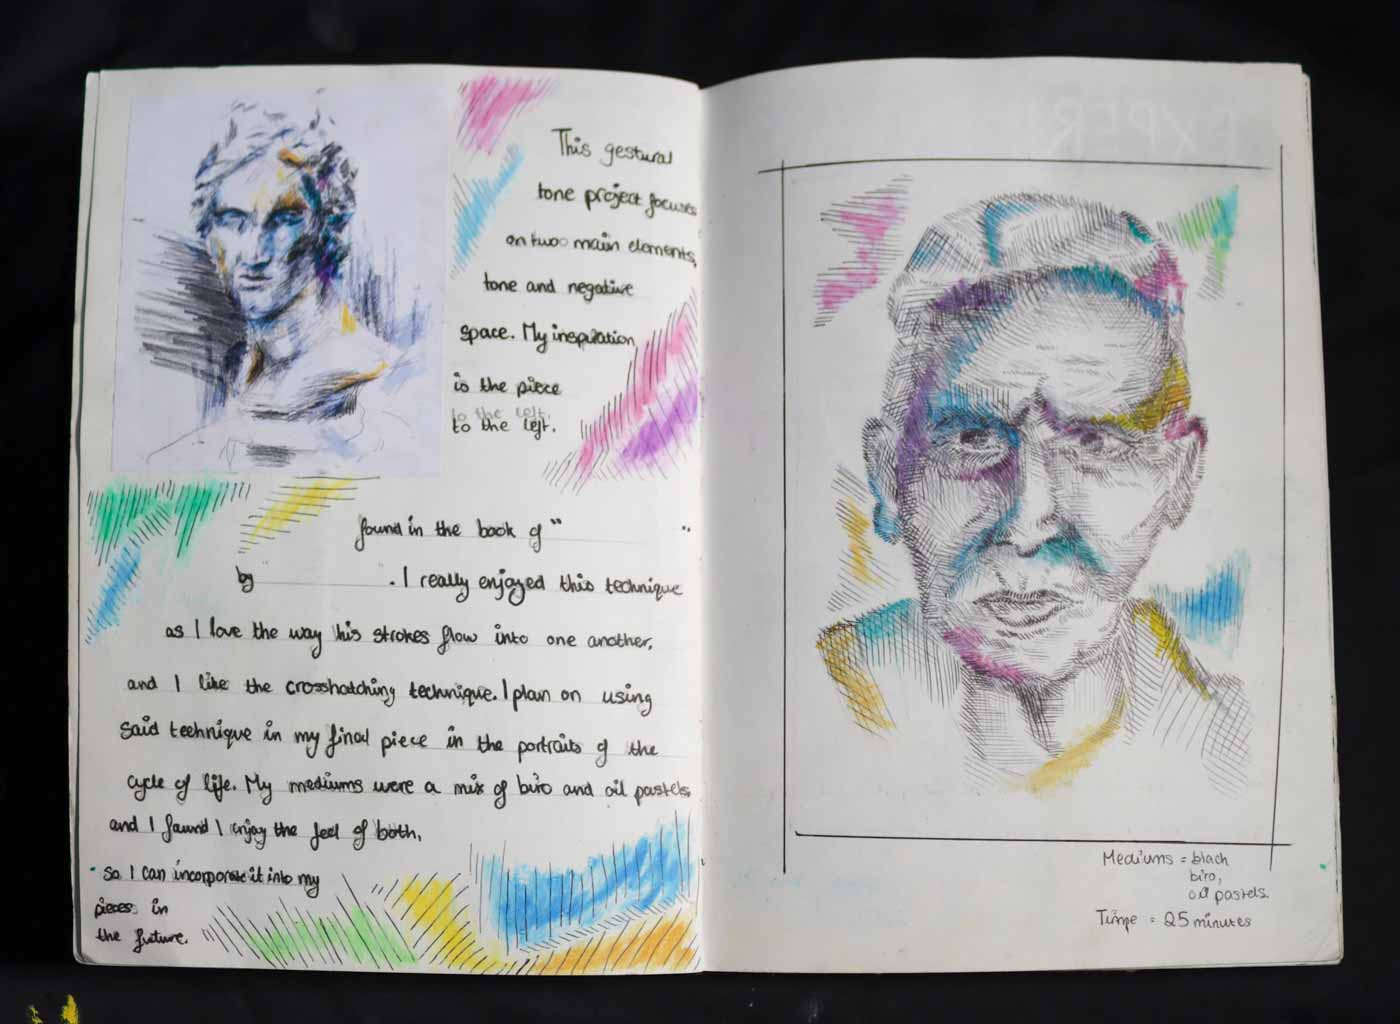 This gestural
tone project focuses
on two main elements,
tone and negative
space. My inspiration
is the piece
to the left.
to the left.
found in the book of " "
by . I really enjoyed this technique
as I love the way his strokes flow into one another,
and I like the crosshatching technique. I plan on using
said technique in my final piece in the portraits of the
cycle of life. My mediums were a mix of biro and oil pastels
and I found I enjoy the feel of both,
so I can incorporate it into my
pieces in
the future.
EXPER
Mediums = black
biro,
oil pastels.
Time = 25 minutes